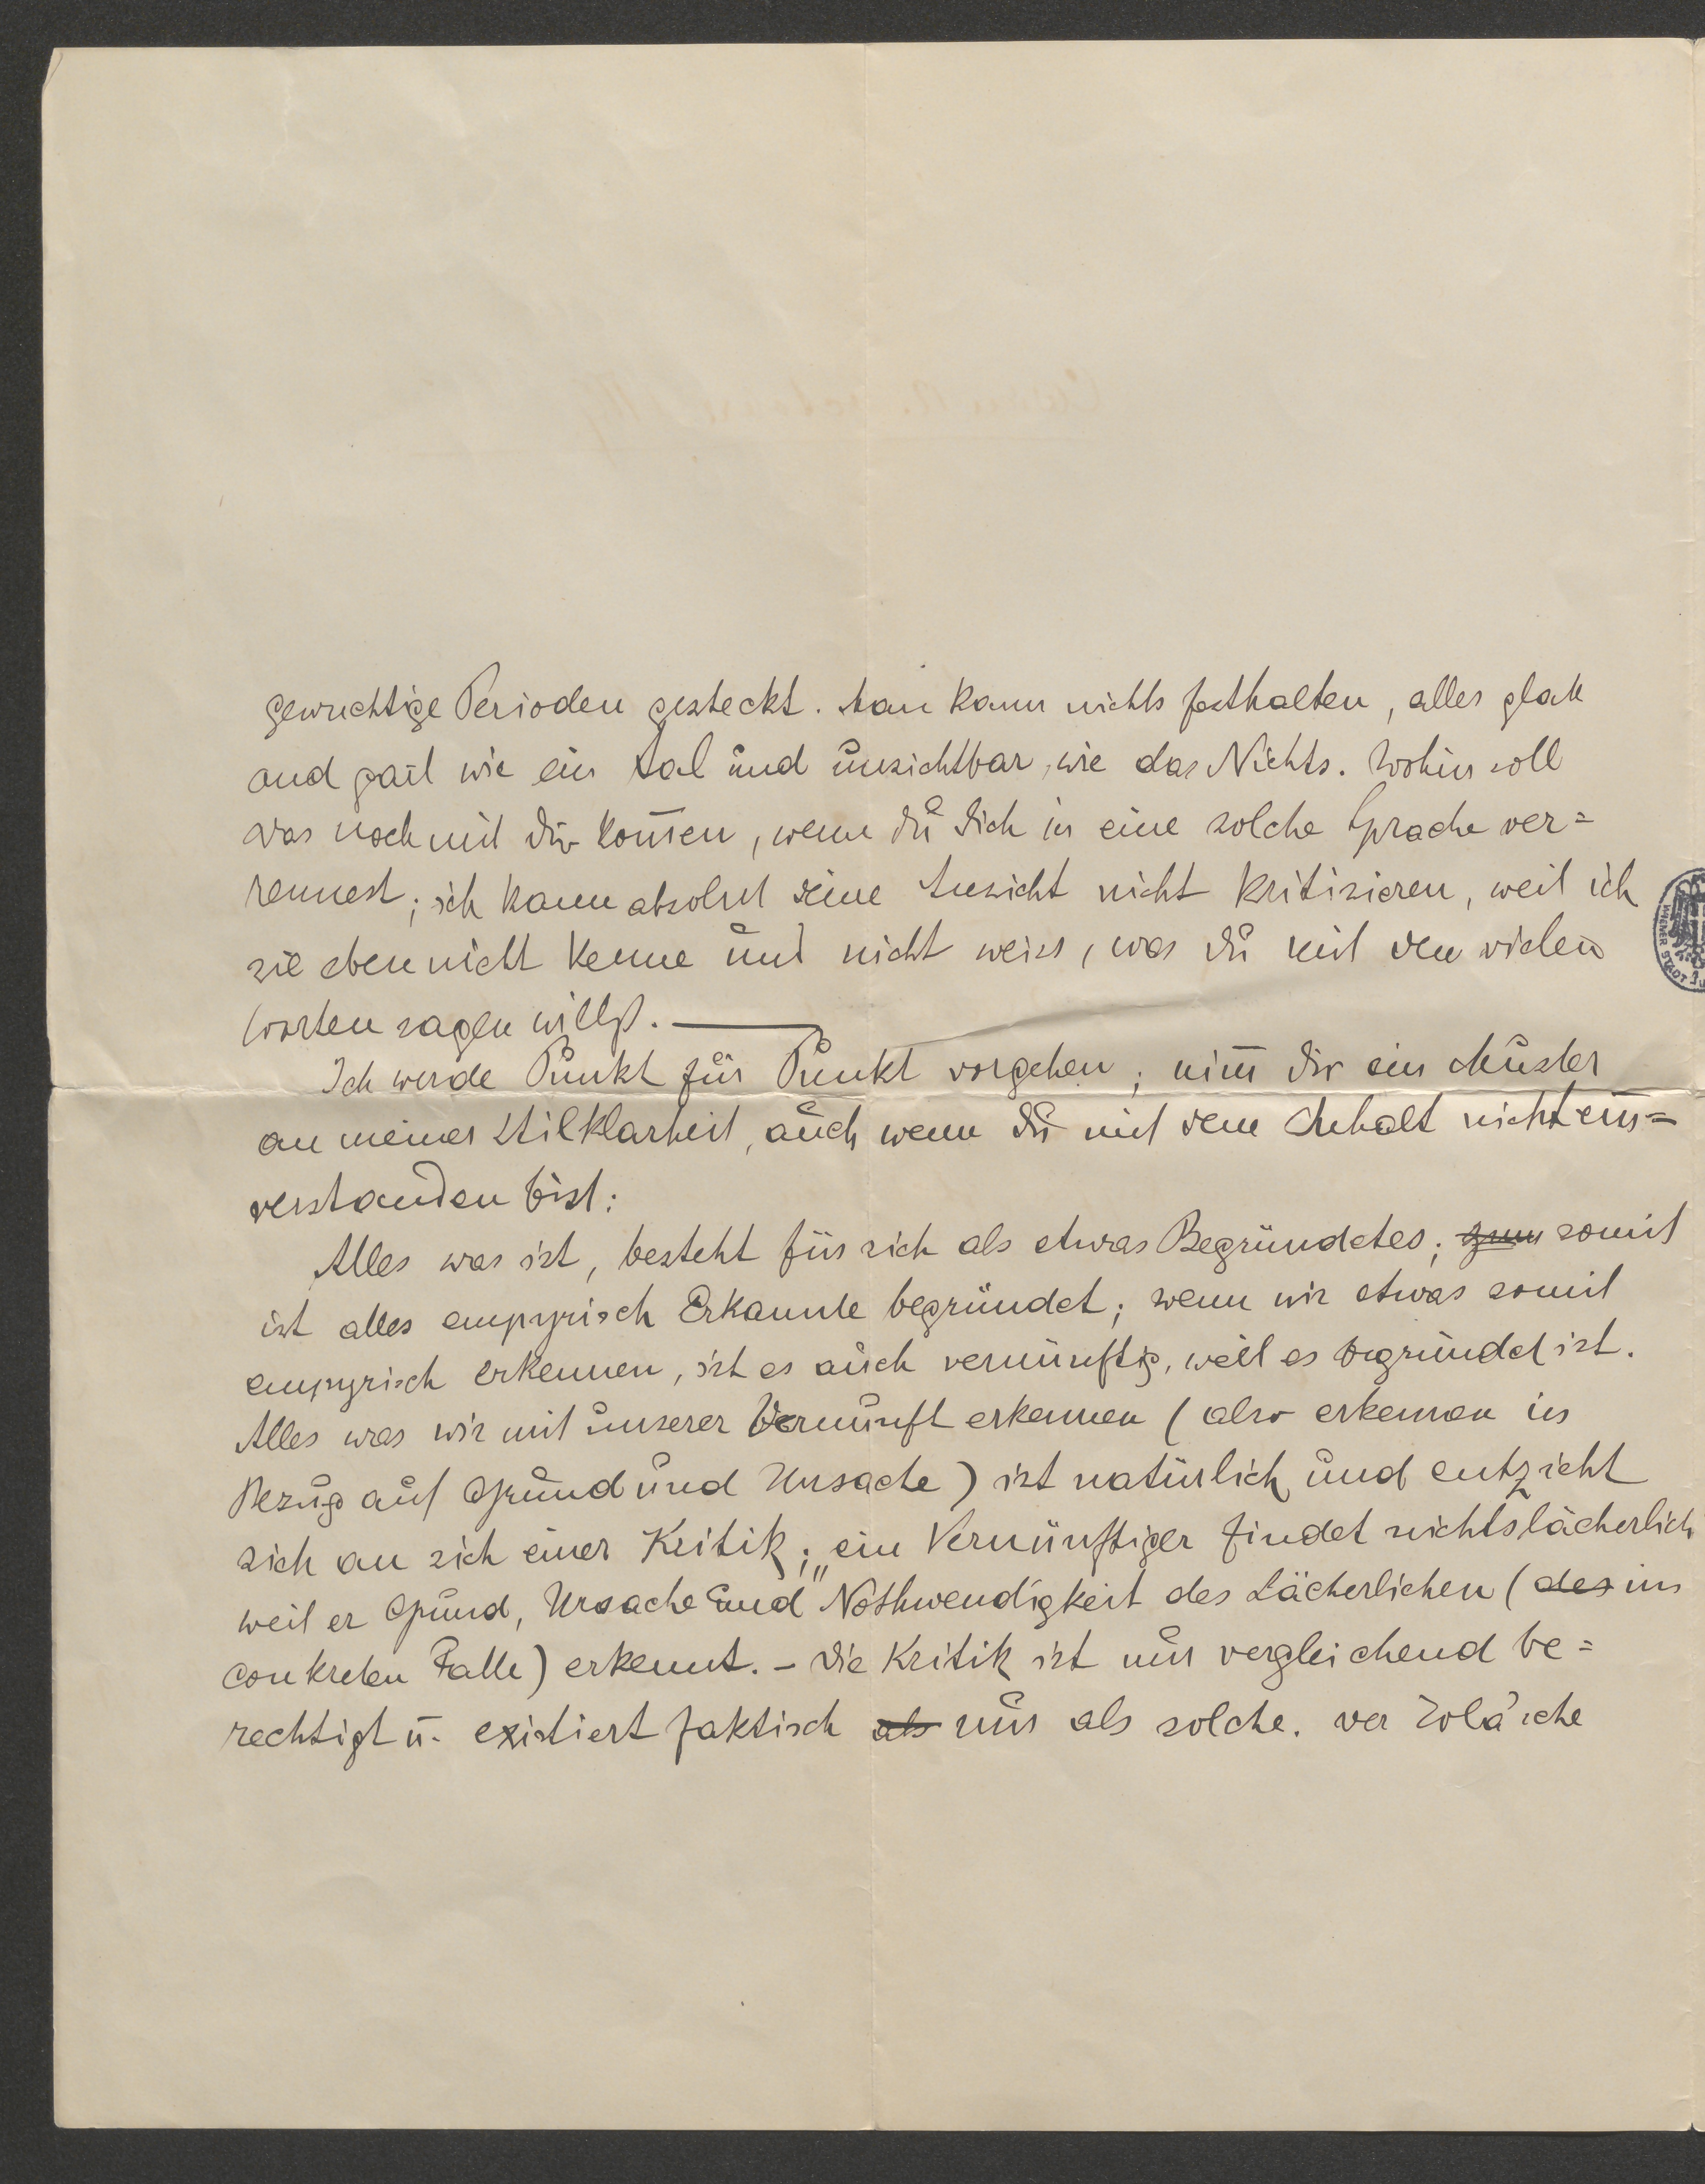 gewuchtige Perioden gesteckt. Man kann nichts festhalten, alles glatt
und geil wie ein Aal und unsichtbar, wie das Nichts. Wohin soll
das noch mit dir kom̅en, wenn du dich in eine solche Sprache ver=
rennest; ich kann absolut deine Ansicht nicht kritisieren, weil ich
sie eben nicht kenne und nicht weiss, was du mit den vielen
Worten sagen willst. —
Ich werde Punkt für Punkt vorgehen; nim̅ dir ein Muster
an meiner Stilklarheit, auch wenn du mit dem Inhalt nicht ein=
verstanden bist:
Alles was ist, besteht für sich als etwas Begründetes; somit
ist alles empyrisch Erkannte begründet; wenn wir etwas somit
empyrisch erkennen, ist es auch vernünftig, weil es begründet ist.
Alles was wir mit unserer Vernunft erkennen (also erkennen in
Bezug auf Grund und Ursache) ist natürlich und entzieht
sich an sich einer Kritik; ein Vernünftiger findet nichts lächerlich
weil er Grund, Ursache und "Nothwendigkeit des Lächerlichen (des im
conkreten Falle) erkennt. – Die Kritik ist nur vergleichend be=
rechtigt u. existiert faktisch als nur als solche. Der Zola'sche
WIENER STADT